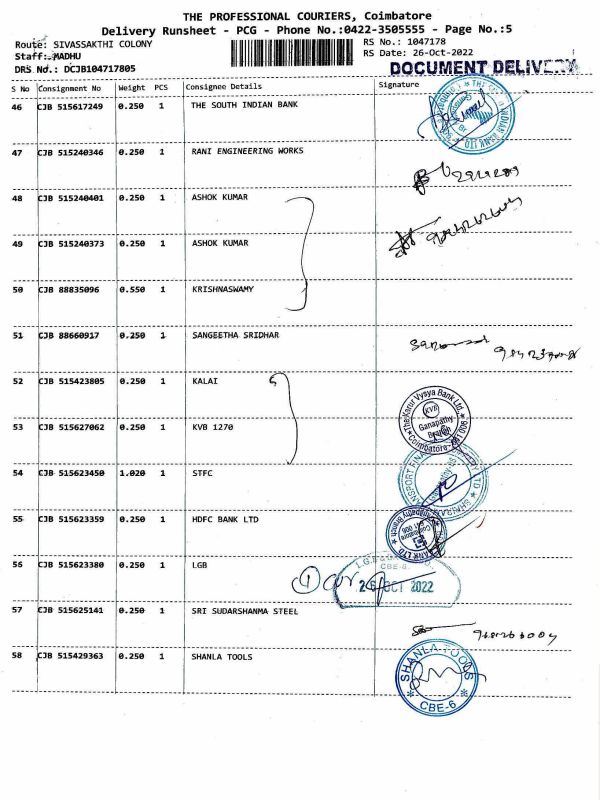 THE PROFESSIONAL COURIERS, Coimbatore
Delivery Runsheet - PCG - Phone No.:0422-3505555 - Page No.:5
Route: SIVASSAKTHI COLONY
RS No.: 1047178
Staff: MADHU
RS Date: 26-Oct-2022
DRS No.: DCJB104717805
DOCUMENT DELIVERY
S No Consignment No Weight PCS Consignee Details Signature
46 CJB 515617249 0.250 1 THE SOUTH INDIAN BANK
47 CJB 515240346 0.250 1 RANI ENGINEERING WORKS
48 CJB 515240401 0.250 1 ASHOK KUMAR
49 CJB 515240373 0.250 1 ASHOK KUMAR
50 CJB 88835096 0.550 1 KRISHNASWAMY
51 CJB 88660917 0.250 1 SANGEETHA SRIDHAR
52 CJB 515423805 0.250 1 KALAI
The Karur Vysya Bank Ltd.
KVB
Ganapathy
Branch
Coimbatore
53 CJB 515627062 0.250 1 KVB 1270
54 CJB 515623450 1.020 1 STFC
55 CJB 515623359 0.250 1 HDFC BANK LTD
56 CJB 515623380 0.250 1 LGB
CBE-6.
1
26 OCT 2022
57 CJB 515625141 0.250 1 SRI SUDARSHANMA STEEL
58 CJB 515429363 0.250 1 SHANLA TOOLS
SHANLA TOOLS
CBE-6